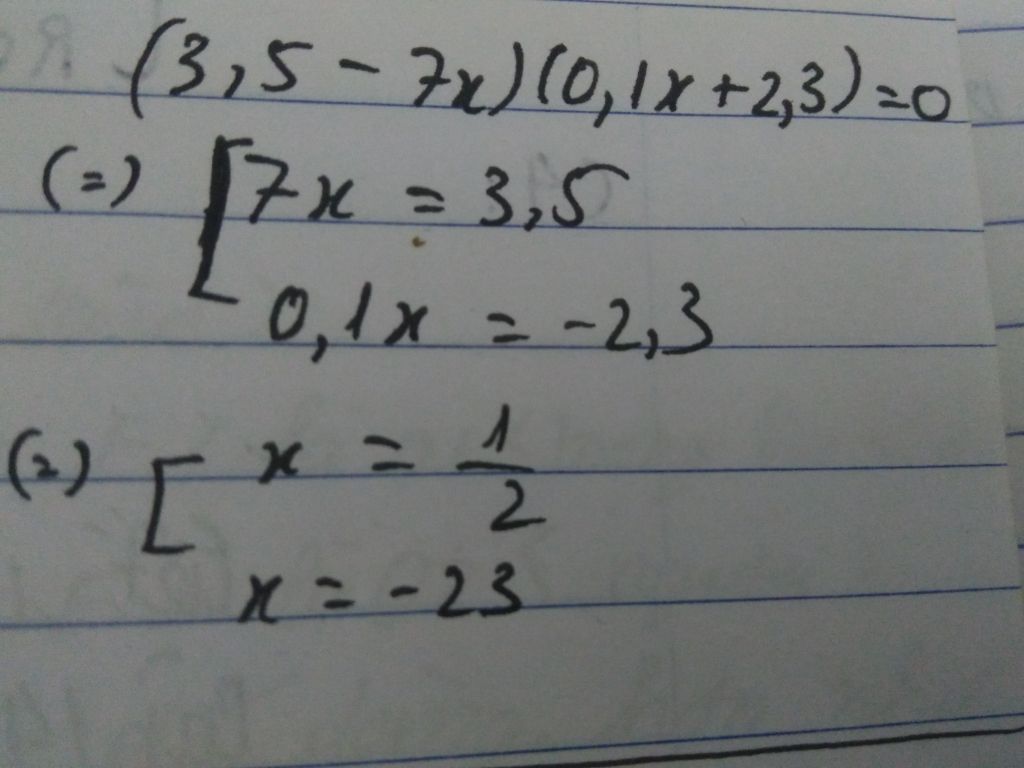 (3,5 - 7x)(0,1x + 2,3) = 0
(=) [ 7x = 3,5
0,1x = -2,3
(=) [ x = 1/2
x = -23